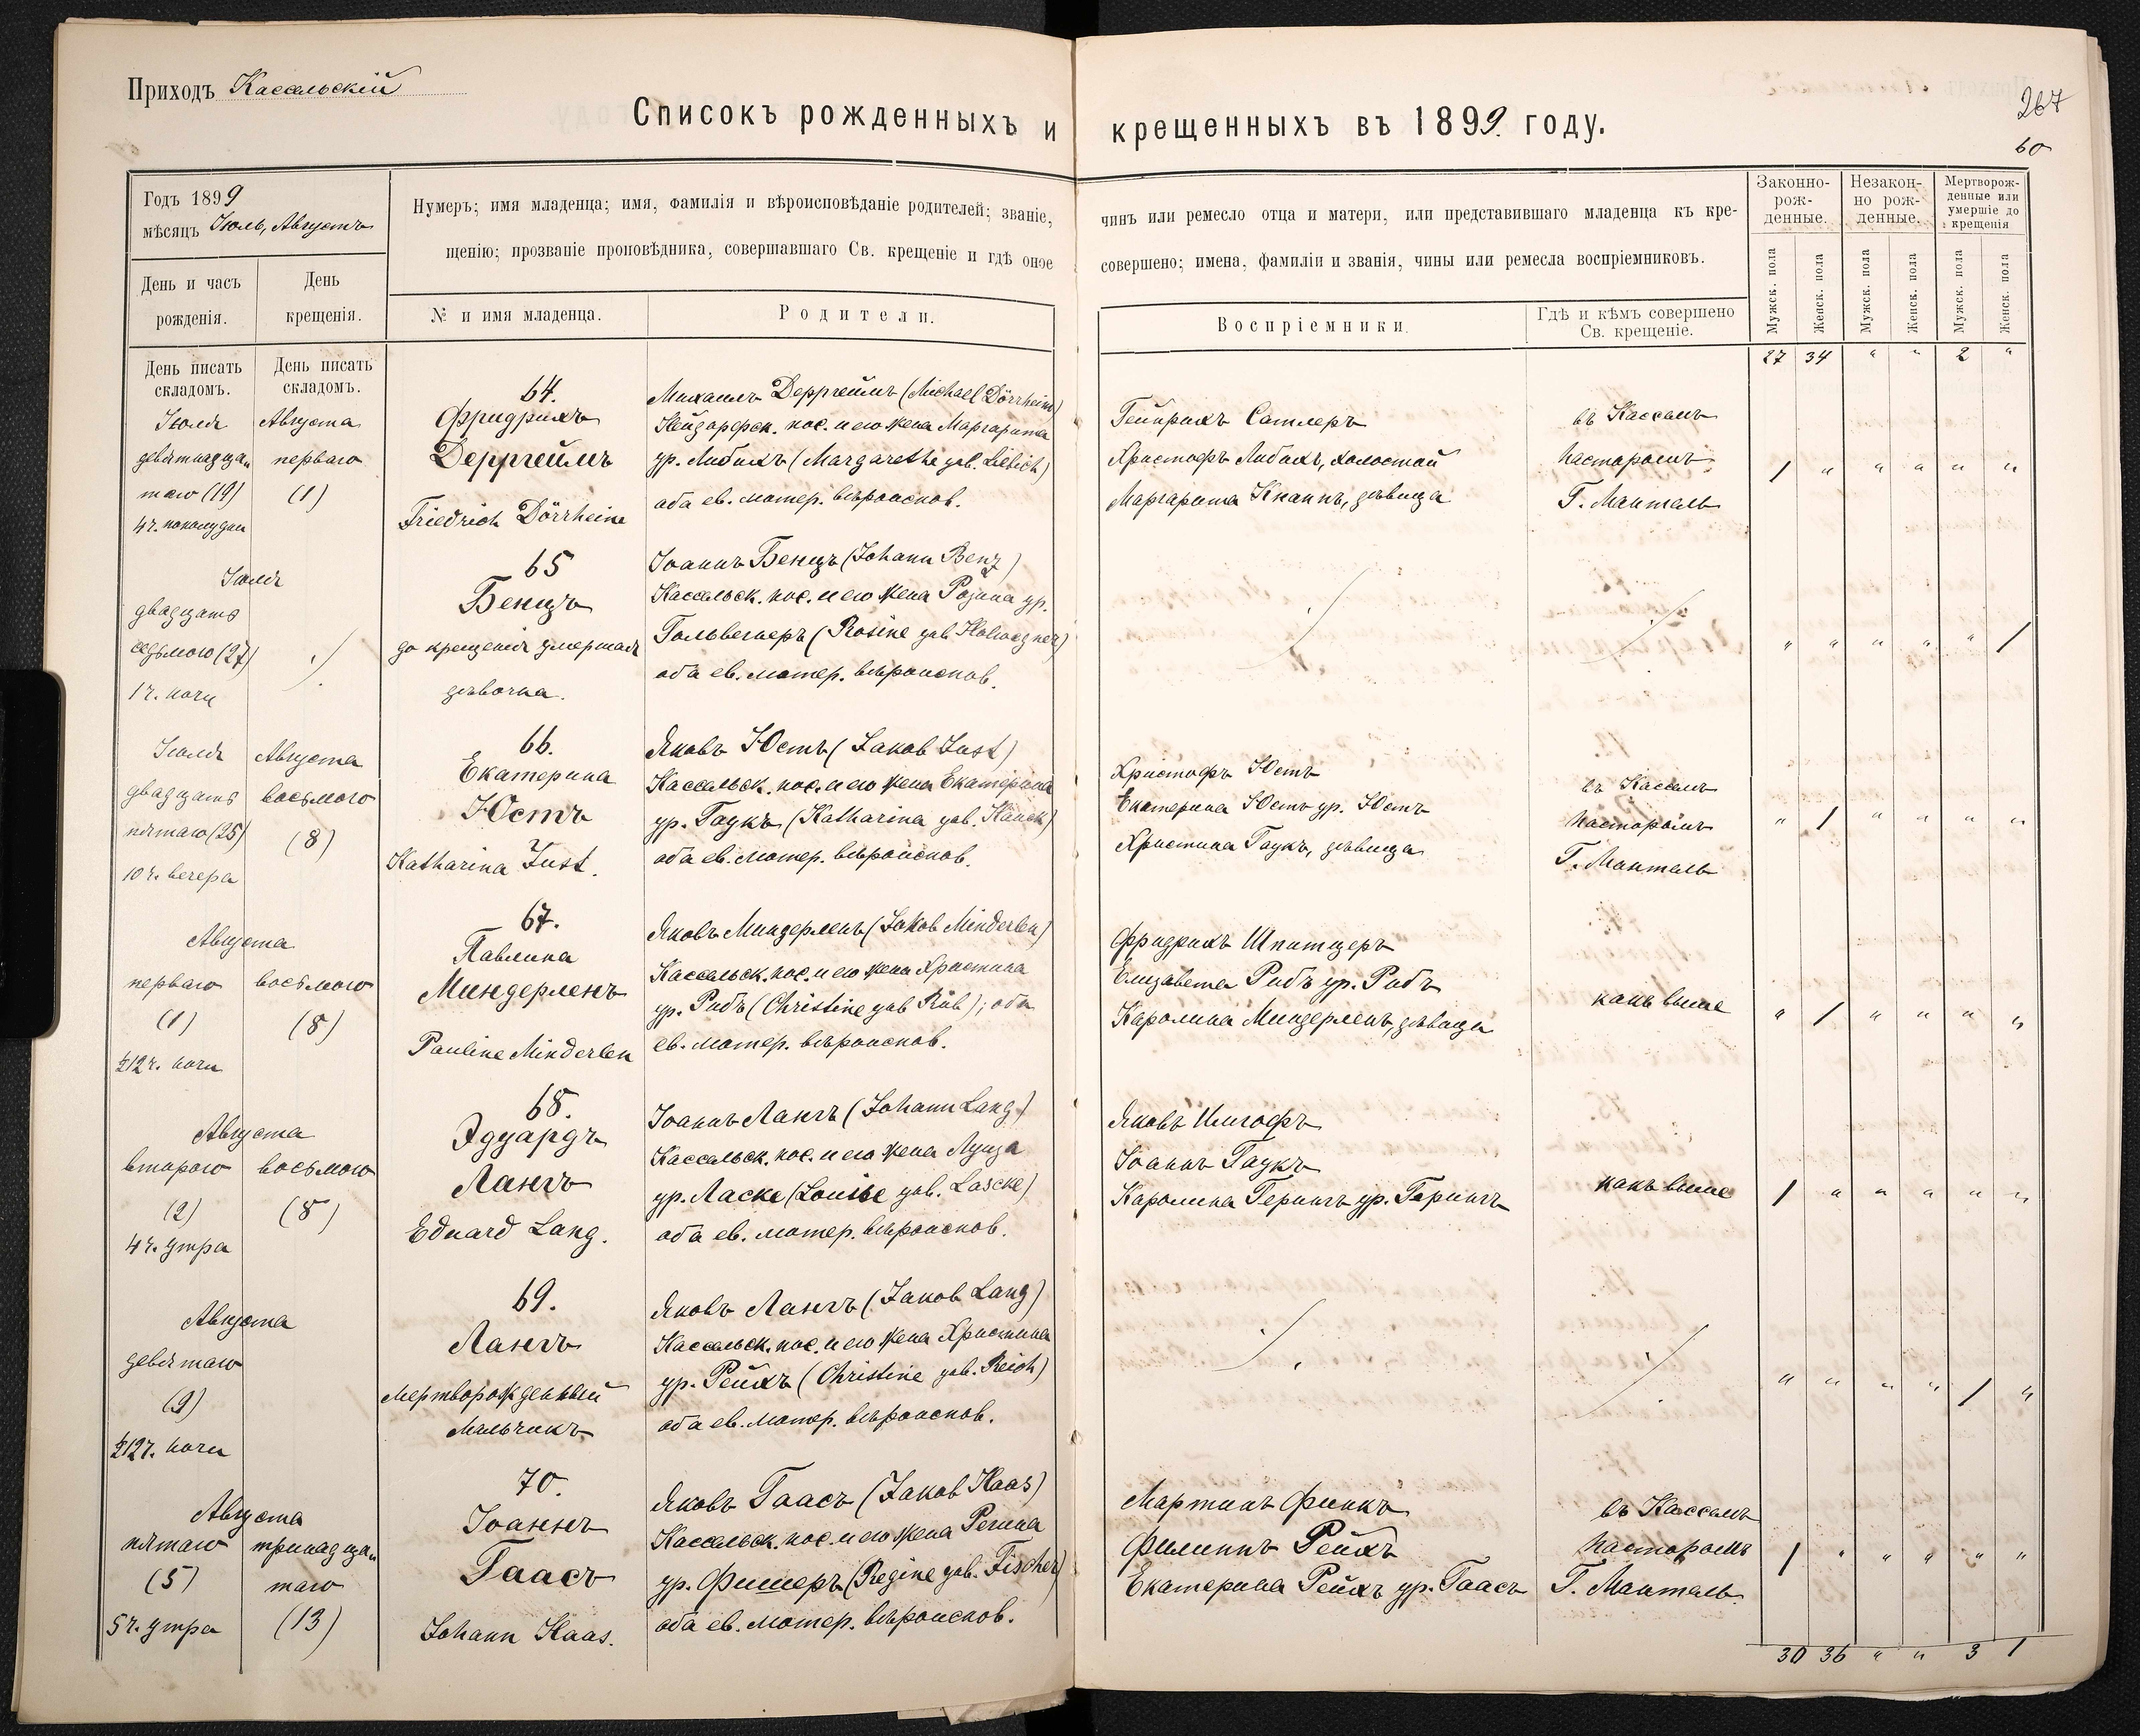 Приходъ Кассельскій
Списокъ рожденныхъ и крещенныхъ въ 1899 году.
267
60
Годъ 1899
мѣсяцъ Іюль, Августъ
День и часъ рожденія.
День крещенія.
Нумеръ; имя младенца; имя, фамилія и вѣроисповѣданіе родителей; званіе, чинъ или ремесло отца и матери, или представившаго младенца къ кре-
щенію; прозваніе проповѣдника, совершавшаго Св. крещеніе и гдѣ оное совершено; имена, фамиліи и званія, чины или ремесла воспріемниковъ.
№ и имя младенца.
Родители.
Воспріемники.
Гдѣ и кѣмъ совершено
Св. крещеніе.
Законно-
рож-
денные.
Незакон-
но рож-
денные.
Мертворож-
денные или
умершіе до
крещенія
Мужск. пола
Женск. пола
Мужск. пола
Женск. пола
Мужск. пола
Женск. пола
День писать
складомъ.
День писать
складомъ.
27 34 " " 2 "
Іюля
девятнадца
таго (19)
4 ч. пополудни
Августа
перваго
(1)
64.
Фридрихъ
Дерргеймъ
Friedrich Dörrheim
Михаилъ Дерргеймъ (Michael Dörrheim)
Нейдорфск. пос. и его жена Маргарита
ур. Либихъ (Margarethe geb. Liebich)
оба ев. лютер. вѣроиспов.
Гейнрихъ Сатлеръ
Христофъ Либихъ, холостой
Маргарита Кнаппъ, дѣвица
въ Касселѣ
Пасторомъ
Г. Манталь
1 " " " " "
Іюля
двадцать
седьмого (27)
1 ч. ночи
65
Бенцъ
до крещенія умершая
дѣвочка.
Іоаннъ Бенцъ (Johann Benz)
Кассельск. пос. и его жена Розина ур.
Гольвегнеръ (Rosine geb. Holwegner)
оба ев. лютер. вѣроиспов.
" " " " " 1
Іюля
двадцать
пятаго (25)
10 ч. вечера
Августа
восьмого
(8)
66.
Екатерина
Юстъ
Katharina Just.
Яковъ Юстъ (Jakob Just)
Кассельск. пос. и его жена Екатерина
ур. Гаукъ (Katharina geb. Hauck)
оба ев. лютер. вѣроиспов.
Христофъ Юстъ
Екатерина Юстъ ур. Юстъ
Христина Гаукъ, дѣвица
въ Касселѣ
Пасторомъ
Г. Манталь
" 1 " " " "
Августа
перваго
(1)
½12 ч. ночи
восьмого
(8)
67.
Павлина
Миндерленъ
Pauline Minderlen
Яковъ Миндерленъ (Jakob Minderlen)
Кассельск. пос. и его жена Христина
ур. Рибъ (Christine geb. Rüb); оба
ев. лютер. вѣроиспов.
Фридрихъ Шпитцеръ
Елизавета Рибъ ур. Рибъ
Каролина Миндерленъ, дѣвица
какъ выше
" 1 " " " "
Августа
второго
(2)
4 ч. утра
восьмого
(8)
68.
Эдуардъ
Лангъ
Eduard Lang.
Іоаннъ Лангъ (Johann Lang)
Кассельск. пос. и его жена Луиза
ур. Ласке (Louise geb. Laske)
оба ев. лютер. вѣроиспов.
Яковъ Имгофъ
Іоаннъ Гаукъ
Каролина Герингъ ур. Герингъ
какъ выше
1 " " " " "
Августа
девятаго
(9)
½12 ч. ночи
69.
Лангъ
Мертворожденный
мальчикъ
Яковъ Лангъ (Jakob Lang)
Кассельск. пос. и его жена Христина
ур. Рейхъ (Christine geb. Reich)
оба ев. лютер. вѣроиспов.
" " " " 1 "
Августа
пятаго
(5)
5 ч. утра
тринадца
таго
(13)
70.
Іоаннъ
Гаасъ
Johann Haas.
Яковъ Гаасъ (Jakob Haas)
Кассельск. пос. и его жена Регина
ур. Фишеръ (Regine geb. Fischer)
оба ев. лютер. вѣроиспов.
Мартинъ Финкъ
Филиппъ Рейхъ
Екатерина Рейхъ ур. Гаасъ
въ Касселѣ
Пасторомъ
Г. Манталь
1 " " " " "
30 36 " " 3 1